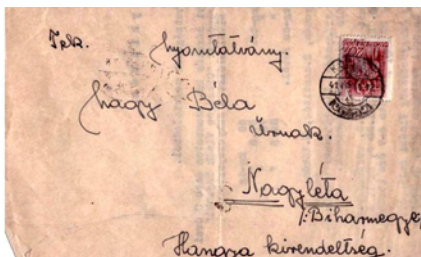 Tek. Nyomtatvány.
Nagy Béla
Úrnak.
Nagyléta
/:Biharmegye
Hangya kirendeltség.